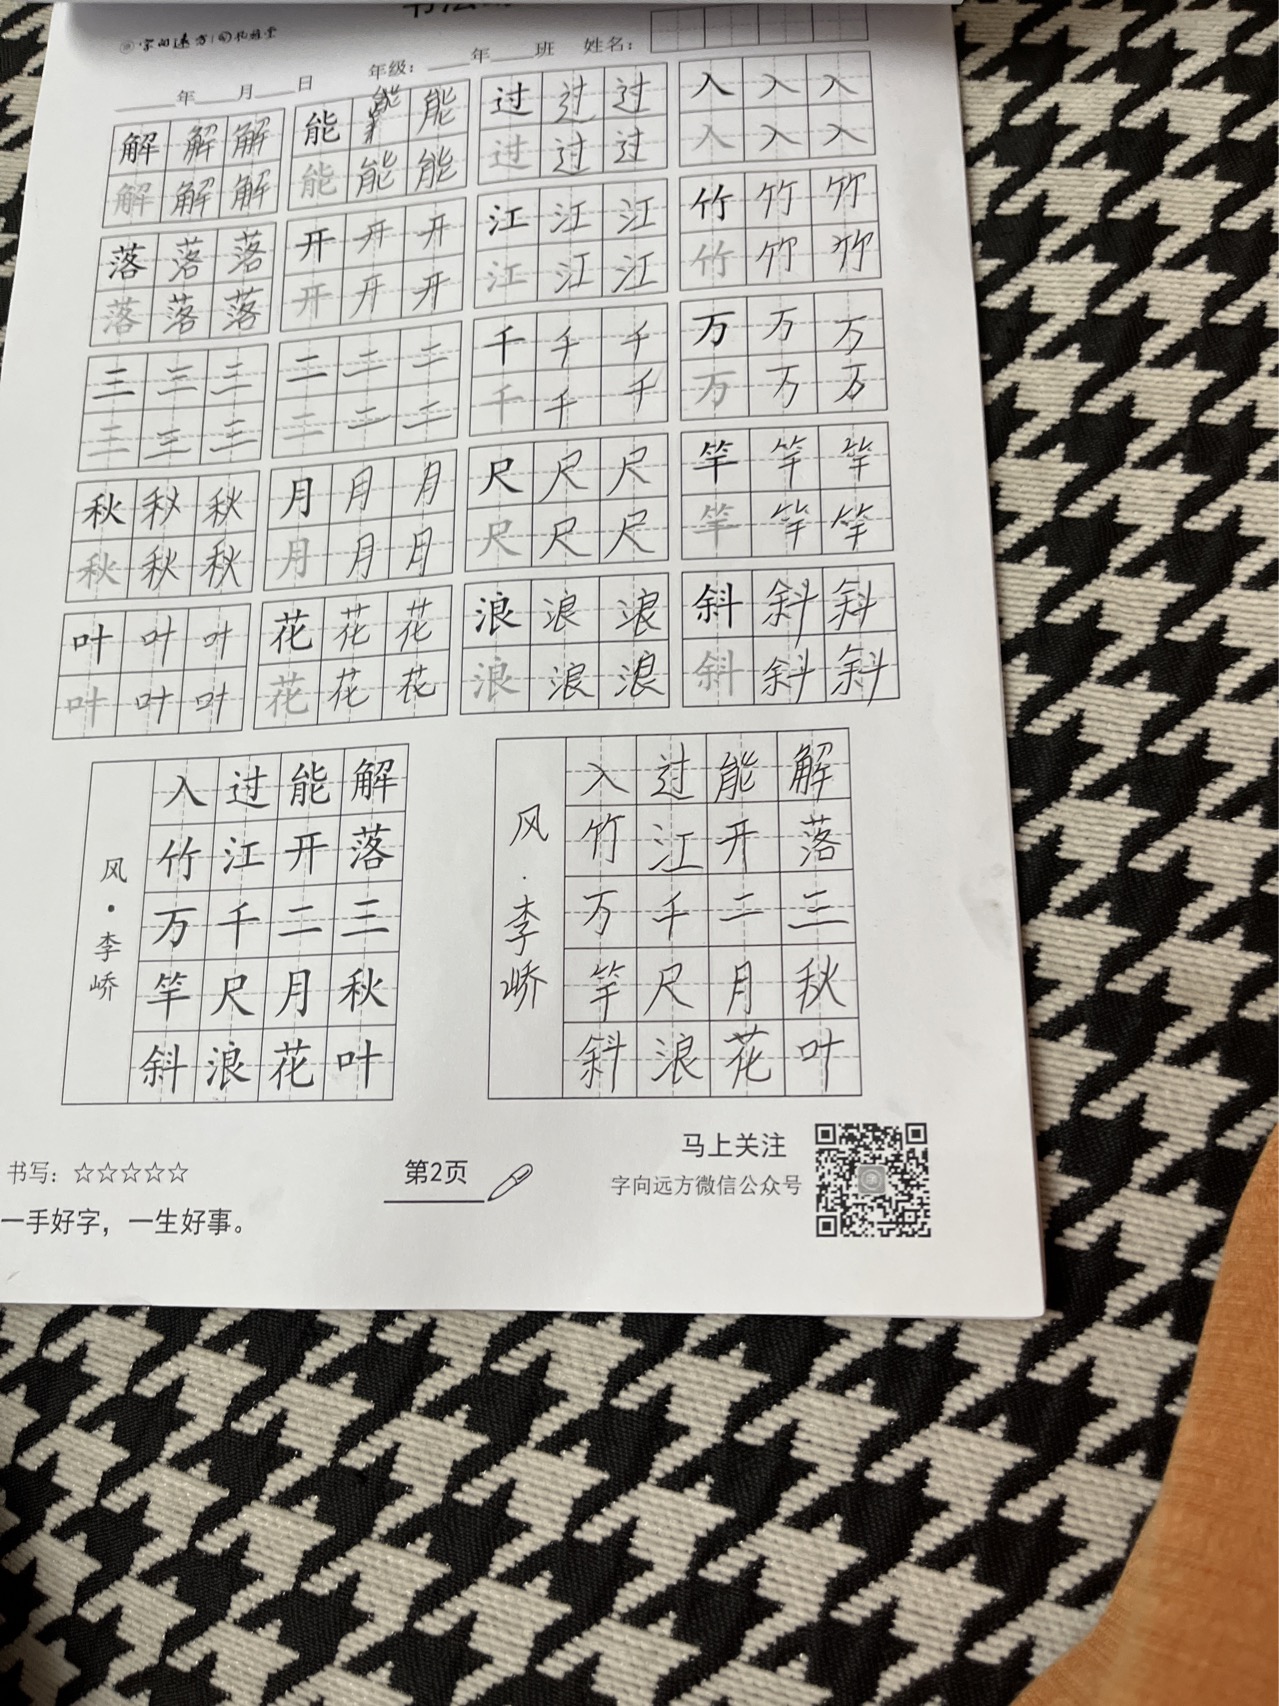 字向远方
年 月 日 年级： 年 班 姓名：
解 解 解 能 能 能 过 过 过 入 入 入
解 解 解 能 能 能 过 过 过 入 入 入
落 落 落 开 开 开 江 江 江 竹 竹 竹
落 落 落 开 开 开 江 江 江 竹 竹 竹
三 三 三 二 二 二 千 千 千 万 万 万
三 三 三 二 二 二 千 千 千 万 万 万
秋 秋 秋 月 月 月 尺 尺 尺 竿 竿 竿
秋 秋 秋 月 月 月 尺 尺 尺 竿 竿 竿
叶 叶 叶 花 花 花 浪 浪 浪 斜 斜 斜
叶 叶 叶 花 花 花 浪 浪 浪 斜 斜 斜
解落三秋叶
能开二月花
过江千尺浪
入竹万竿斜
风·李峤
解落三秋叶
能开二月花
过江千尺浪
入竹万竿斜
风·李峤
书写：☆☆☆☆☆
一手好字，一生好事。
第2页
马上关注
字向远方微信公众号